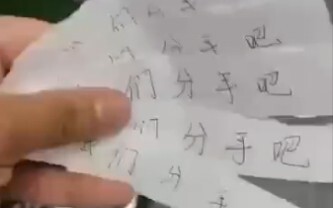 们分手
们分手吧
们分手吧
们分手吧
们分手